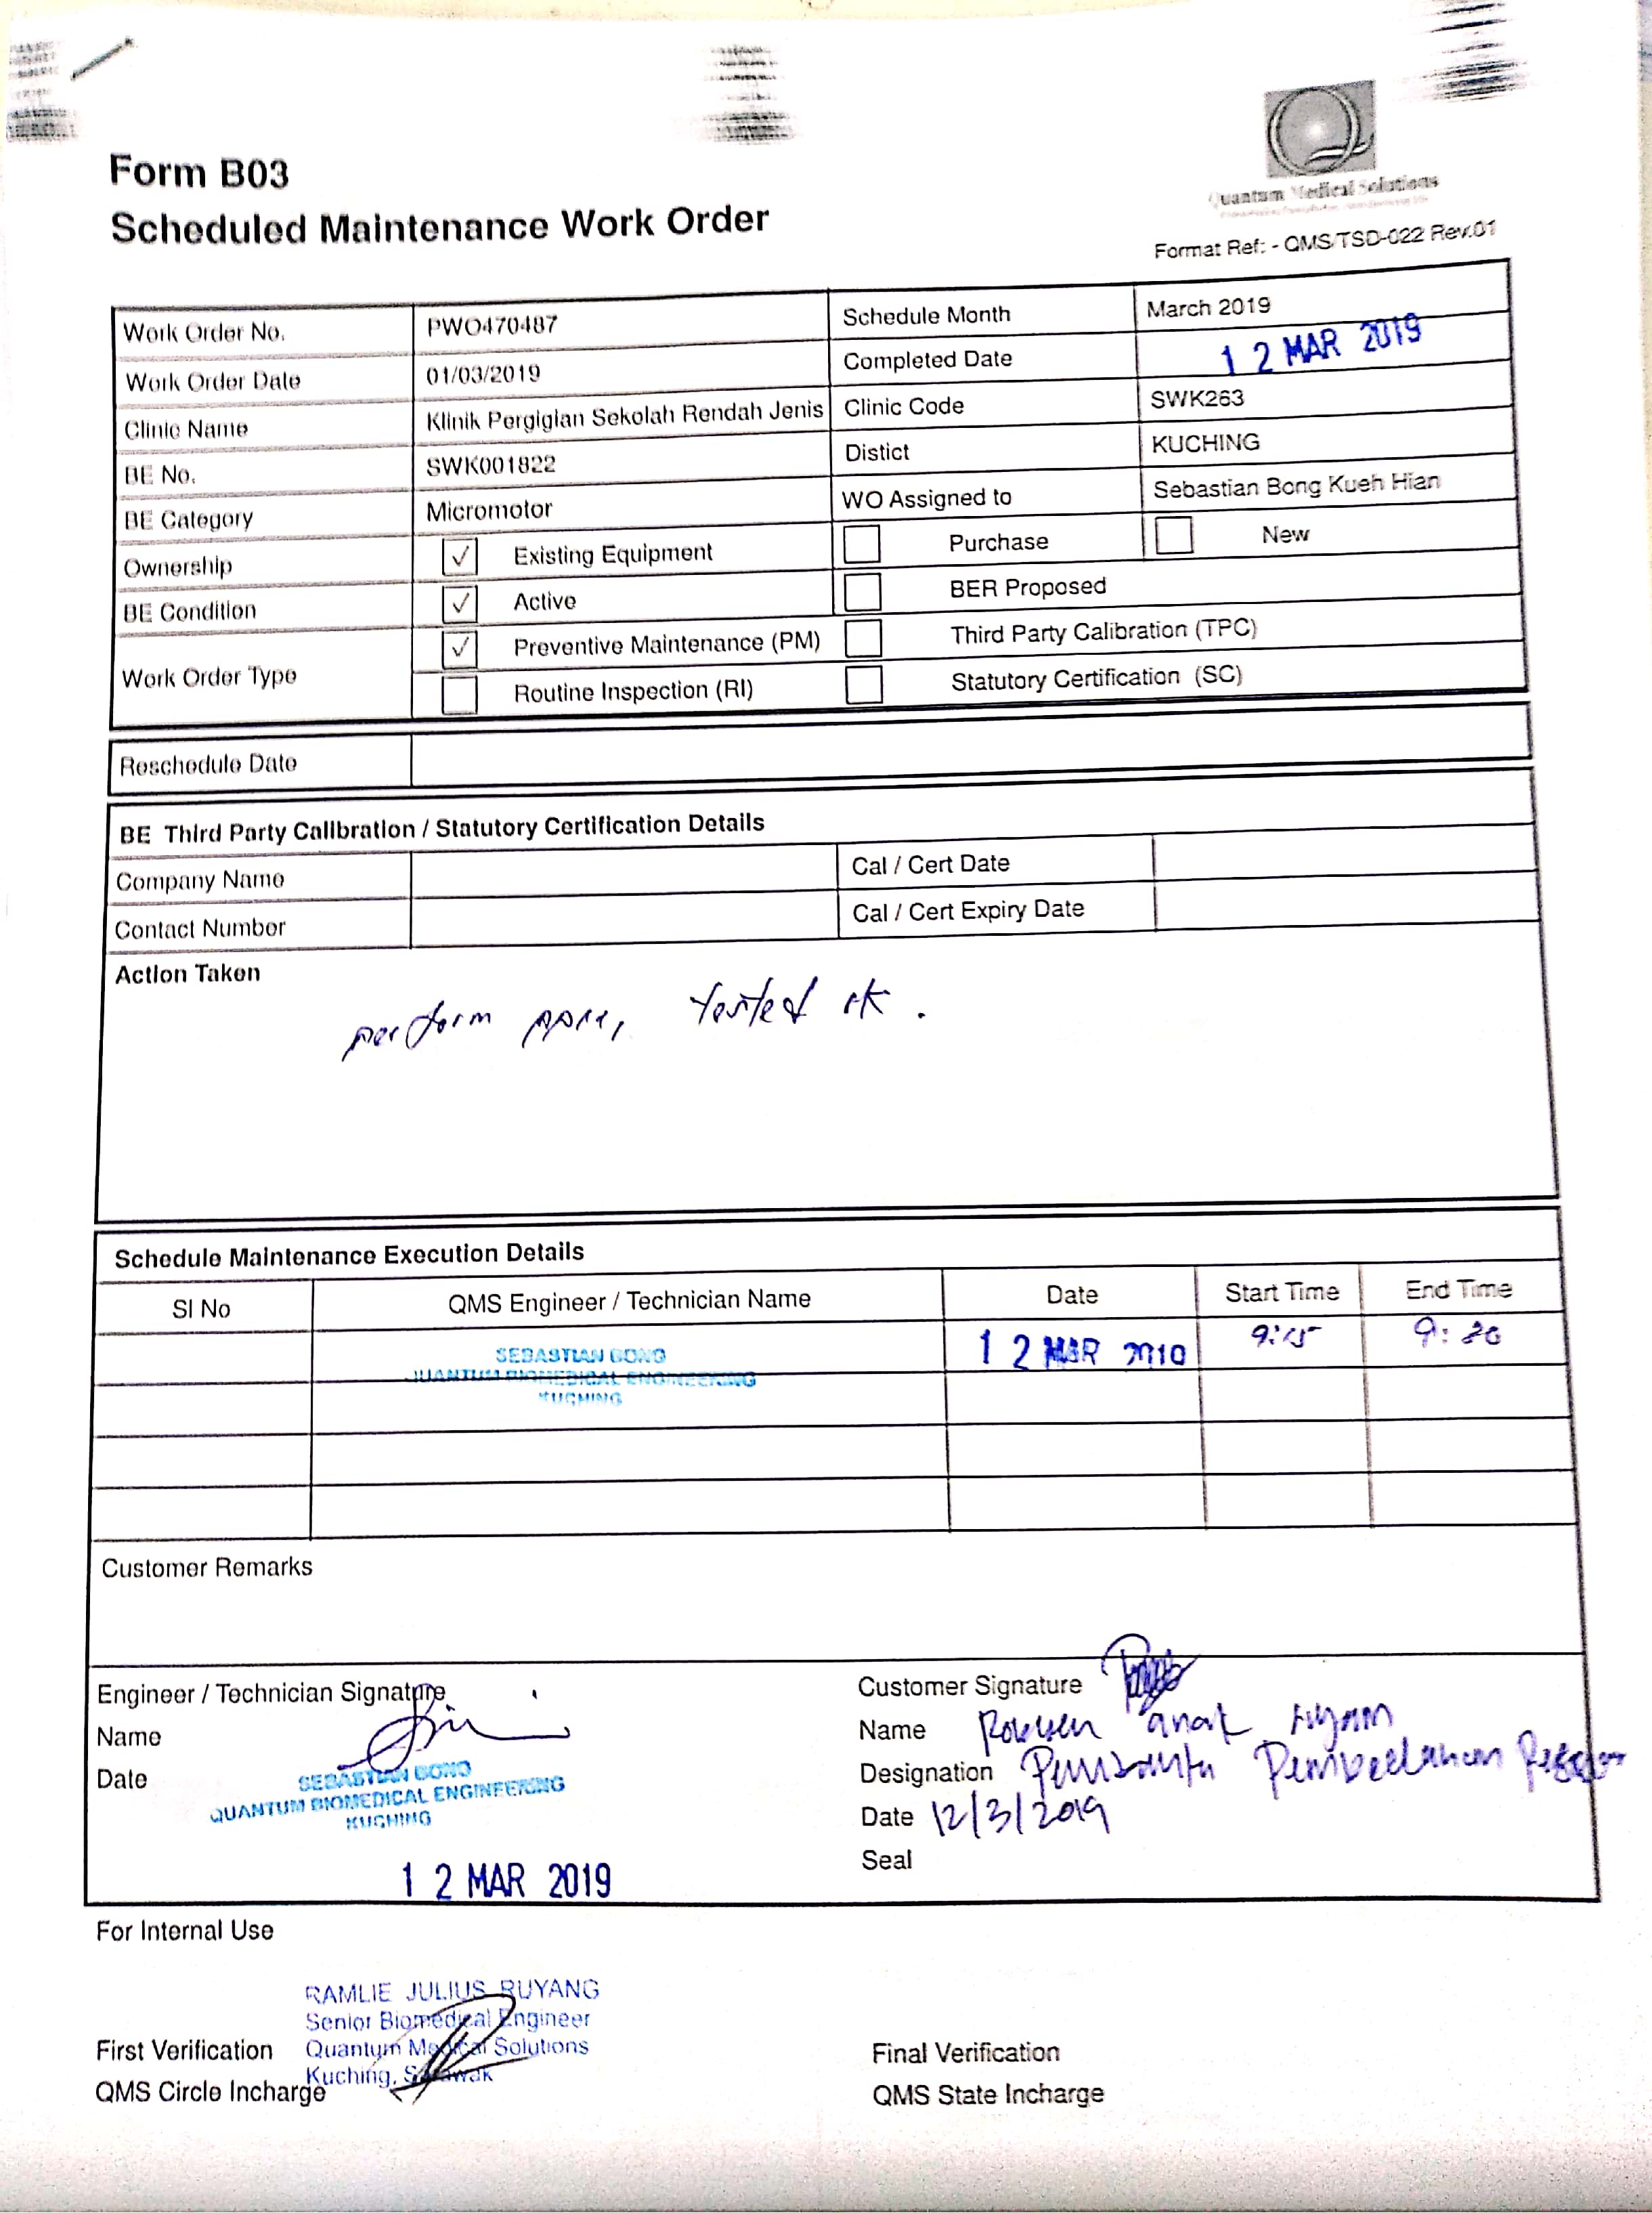 Form B03
Scheduled Maintenance Work Order
Quantum Medical Solutions
Format Ref: - QMS/TSD-022 Rev.01
Work Order No. PWO470487 Schedule Month March 2019
Work Order Date 01/03/2019 Completed Date 12 MAR 2019
Clinic Name Klinik Pergigian Sekolah Rendah Jenis Clinic Code SWK263
BE No. SWK001822 Distict KUCHING
BE Category Micromotor WO Assigned to Sebastian Bong Kueh Hian
Ownership ✓ Existing Equipment Purchase New
BE Condition ✓ Active BER Proposed
Work Order Type ✓ Preventive Maintenance (PM) Third Party Calibration (TPC)
Routine Inspection (RI) Statutory Certification (SC)
Reschedule Date
BE Third Party Calibration / Statutory Certification Details
Company Name Cal / Cert Date
Contact Number Cal / Cert Expiry Date
Action Taken
perform ppm, tested ok.
Schedule Maintenance Execution Details
SI No QMS Engineer / Technician Name Date Start Time End Time
SEBASTIAN BONG 12 MAR 2019 9:15 9:20
QUANTUM BIOMEDICAL ENGINEERING
KUCHING
Customer Remarks
Engineer / Technician Signature
Name
Date
SEBASTIAN BONG
QUANTUM BIOMEDICAL ENGINEERING
KUCHING
12 MAR 2019
Customer Signature
Name anak
Designation Pembantu Pembedahan
Date 12/3/2019
Seal
For Internal Use
RAMLIE JULIUS RUYANG
Senior Biomedical Engineer
Quantum Medical Solutions
Kuching, Sarawak
First Verification
QMS Circle Incharge
Final Verification
QMS State Incharge